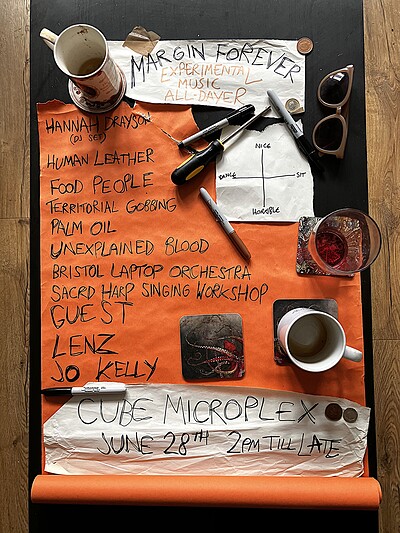 MARGIN FOREVER
EXPERIMENTAL
MUSIC
ALL-DAYER
HANNAH DRAYSON
(DJ SET)
HUMAN LEATHER
FOOD PEOPLE
TERRITORIAL GOBBING
PALM OIL
UNEXPLAINED BLOOD
BRISTOL LAPTOP ORCHESTRA
SACRD HARP SINGING WORKSHOP
GUEST
LENZ
JO KELLY
NICE
DANCE
SIT
HORRIBLE
CUBE MICROPLEX
JUNE 28TH 2PM TILL LATE